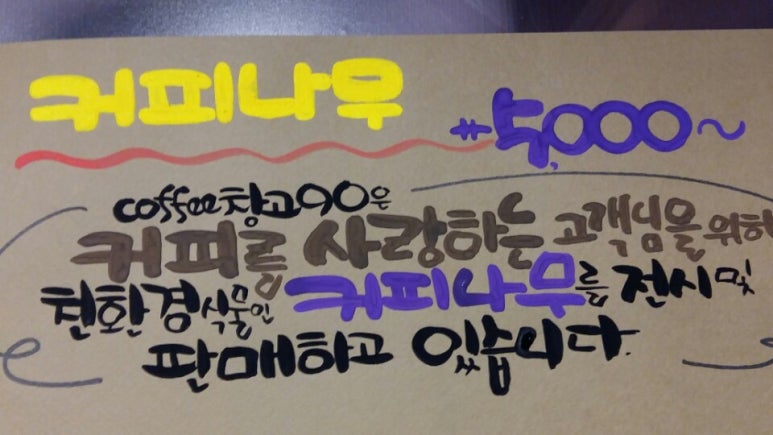 커피나무
₩5,000~
coffee창고90은
커피를 사랑하는 고객님을 위해
친환경식물인 커피나무를 전시 및
판매하고 있습니다.